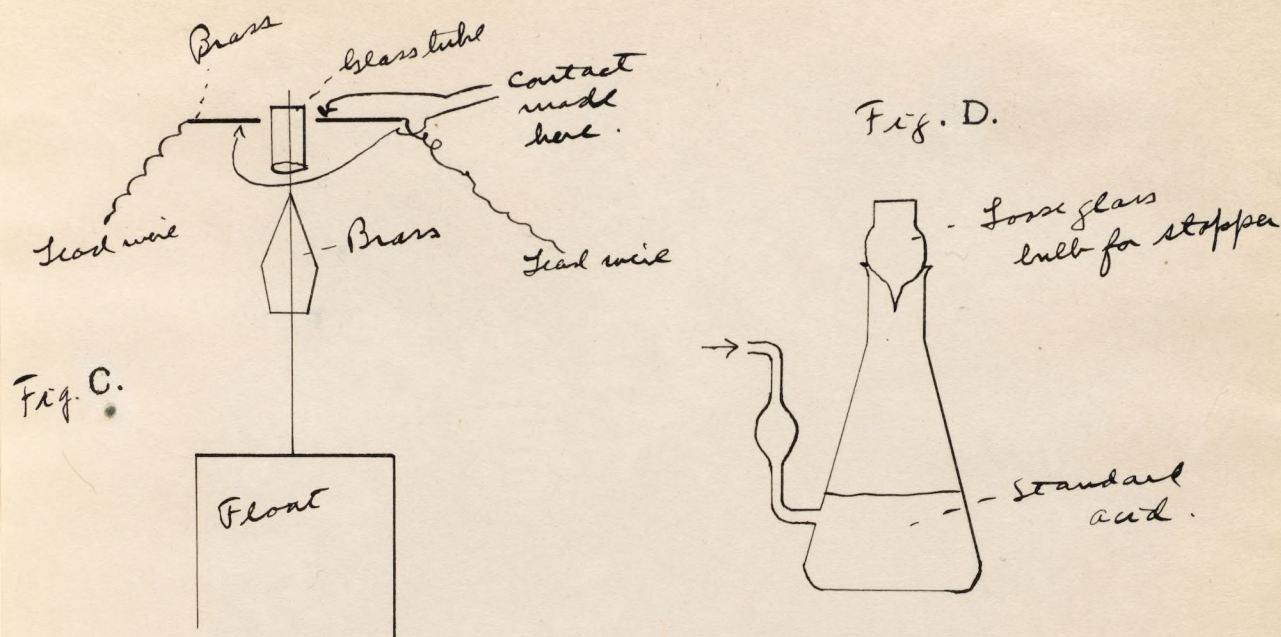 Brass
Glass tube
Contact
made
here.
Lead wire
Brass
Lead wire
Fig. C.
Float
Fig. D.
Loose glass
bulb for stopper
Standard
acid.